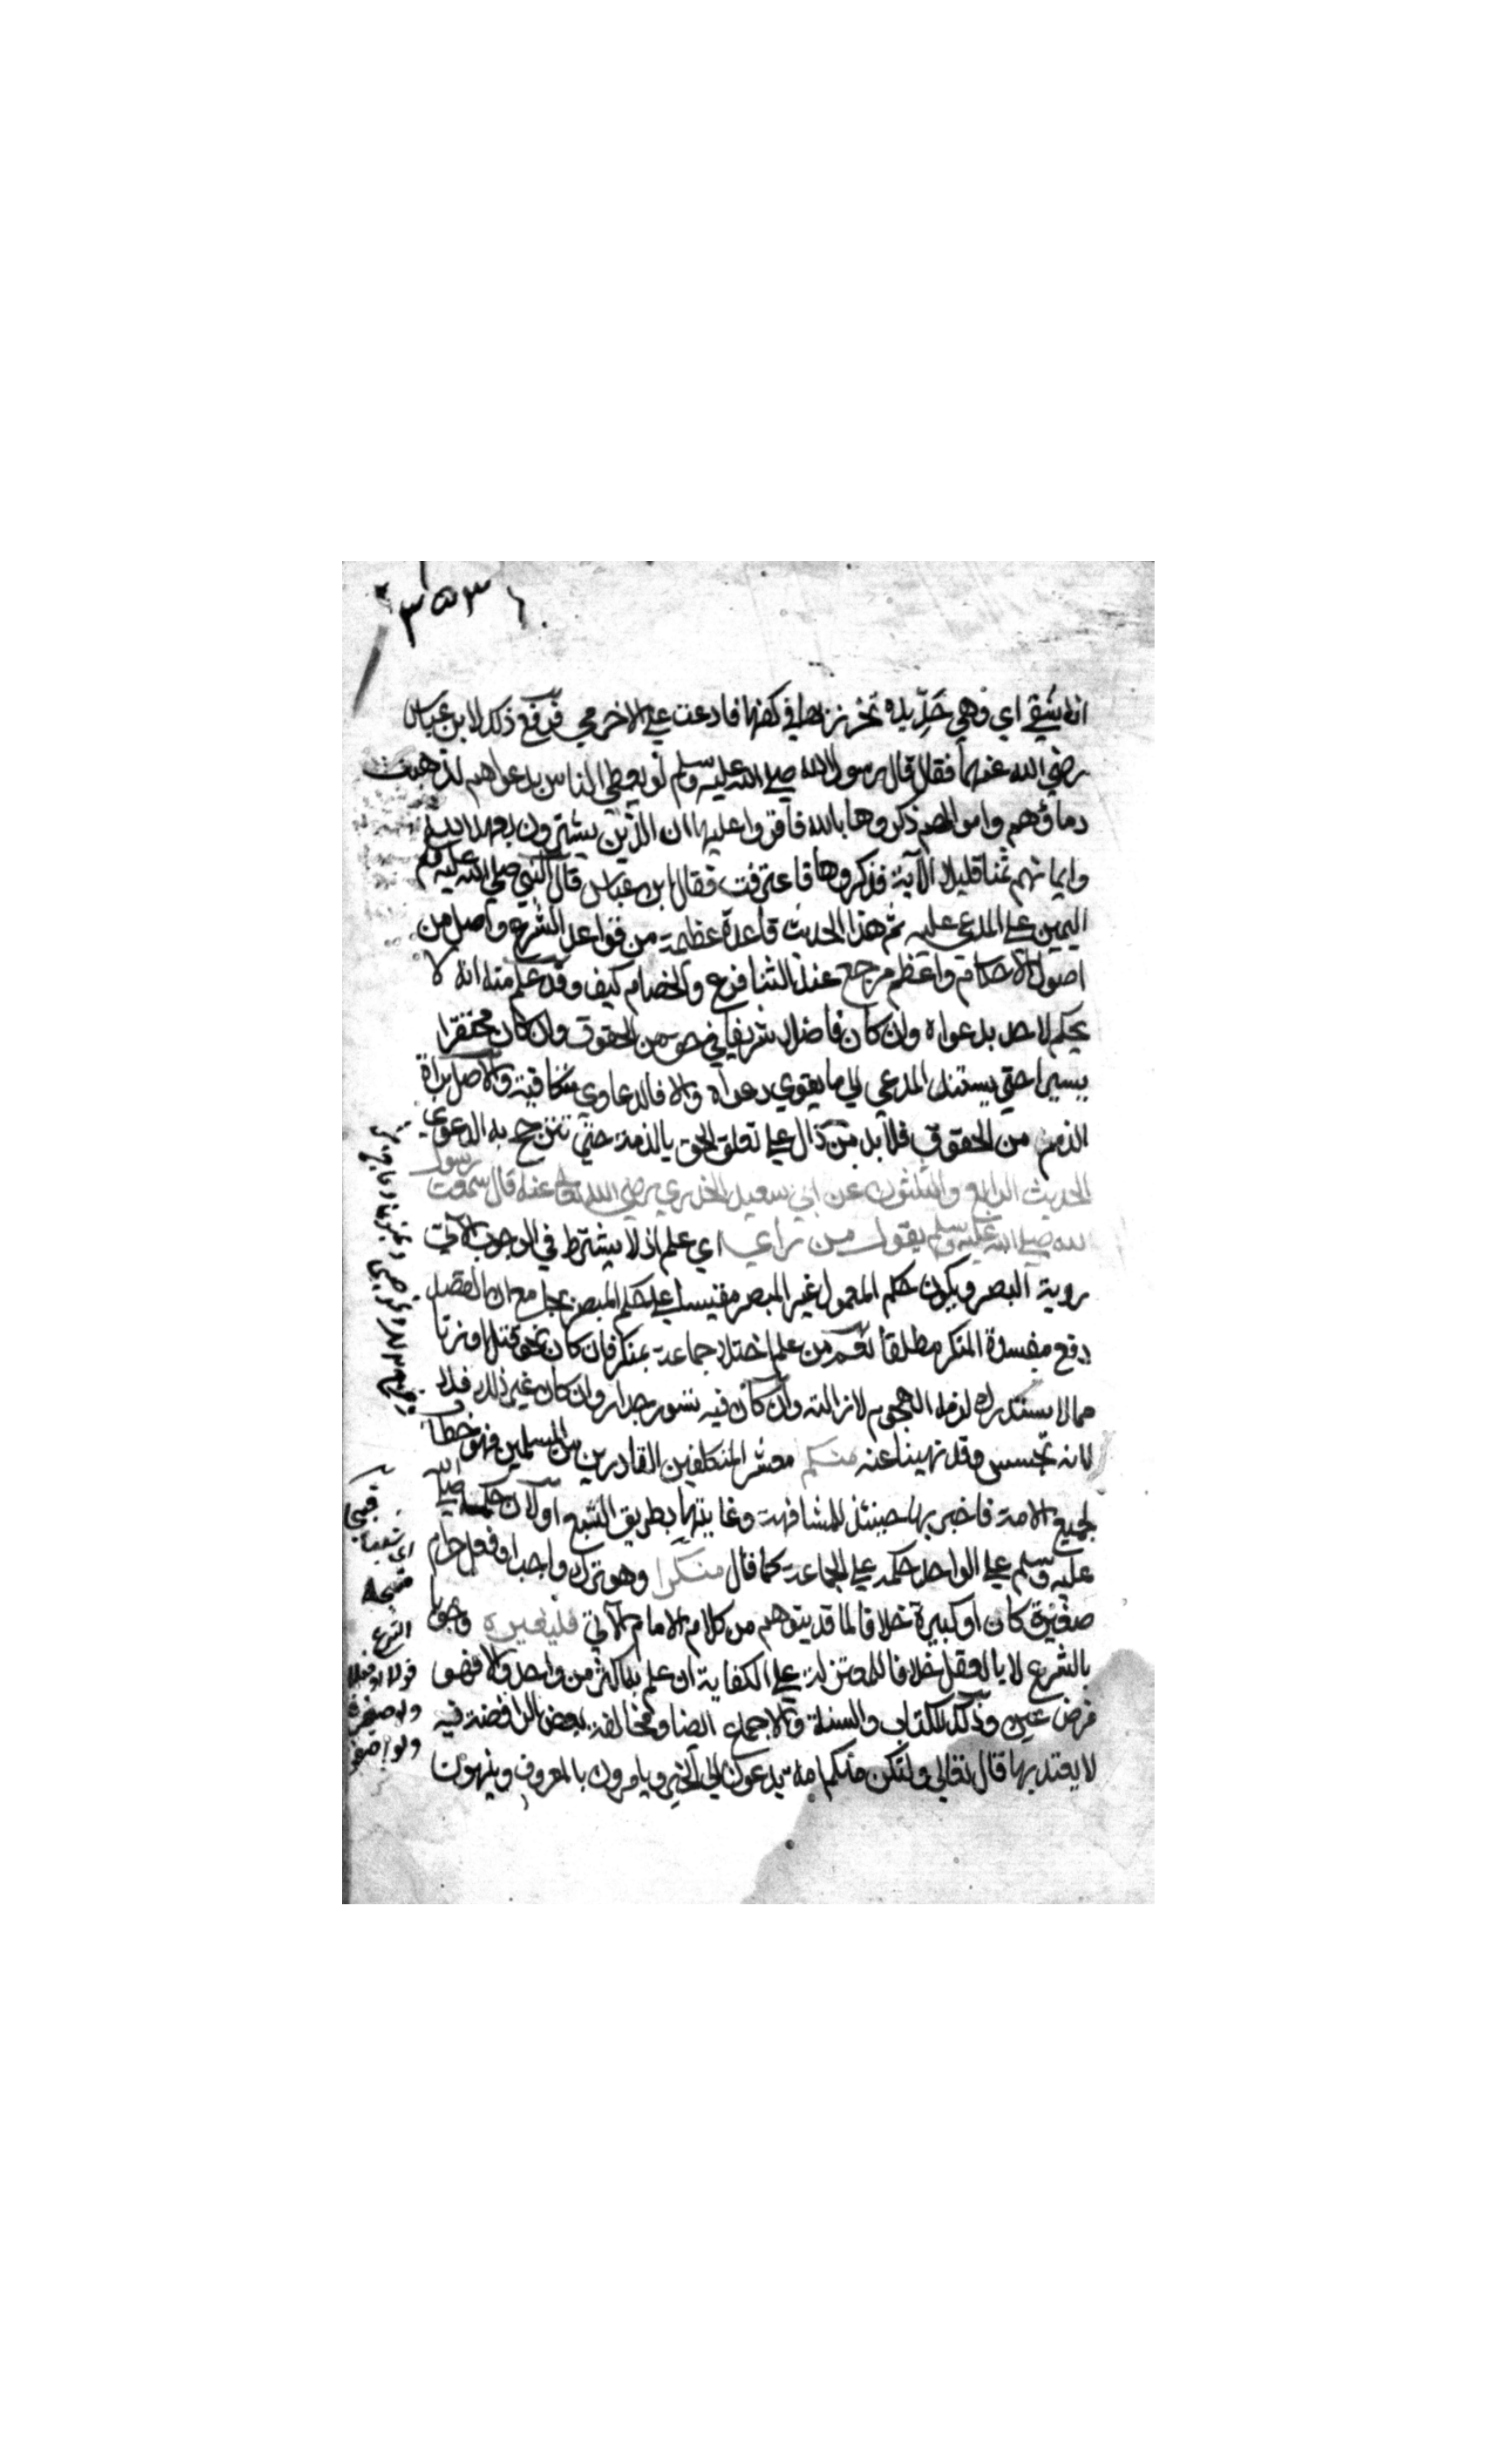 ٣٥٣
اي وهي حديده تخرز بها في كفها فادعت علي الاخري فرفع ذلك لابن عباس
رضي الله عنهما فقال قال رسول الله صلي الله عليه وسلم لو يعطي الناس بدعواهم لذهبت
دماؤهم واموالهم ذكروها بالله فاقرؤا عليها ان الذين يشترون بعهد الله
وايمانهم ثمنا قليلا الآية فذكروها فاعترفت فقال ابن عباس قال النبي صلي الله عليه وسلم
اليمين علي المدعي عليه ثم هذا الحديث قاعدة عظيمة من قواعد الشرع واصل من
اصول الاحكام واعظم مرجع عند التنازع والخصام كيف وقد علم منه انه لا
يحكم لاحد بدعواه وان كان فاضلا شريفا في حق من الحقوق وان كان محتقرا
يسيرا حتي يستند المدعي الي ما يقوي دعواه والا فالدعاوي متكافية والاصل براة
الذمم من الحقوق فلا بد من دال علي تعلق الحق بالذمة حتي تترجح به الدعوي
الحديث الرابع والثلثون عن ابي سعيد الخدري رضي الله تعالي عنه قال سمعت رسول
الله صلي الله عليه وسلم يقول من راي اي علم اذ لا يشترط في الوجوب الآتي
روية البصر ويكون حكم المعمول غير المبصر مقيسا علي حكم المبصر بجامع ان القصد
دفع مفسدة المنكر مطلقا نعم من علم اختلا جماعة بمنكر فان كان نحو قتل او زنا
مما لا يستدرك لزمه الهجوم لازالته وان كان فيه تسور جدار وان كان غير ذلك فلا
لانه تجسس وقد نهينا عنه منكم معشر المتكلفين القادرين من المسلمين فهو خطاب
لجميع الامة فاخبر بها حينئذ للمشافهة وغايبها بطريق التبع او لان حكمه صلي الله
عليه وسلم علي الواحد حكمه علي الجماعة كما قال منكرا وهو ترك واجب او فعل حرام
صغيرة كان او كبيرة خلافا لما قد يتوهم من كلام الامام الآتي فليغيره وجوبا
بالشرع لا بالعقل خلافا للمعتزلة علي الكفاية ان علم به اكثر من واحد والا فهو
فرض عين وذلك للكتاب والسنة والاجماع ايضا ومخالفة بعض الرافضة فيه
لا يعتد بها قال تعالي ولتكن منكم امة يدعون الي الخير ويامرون بالمعروف وينهون